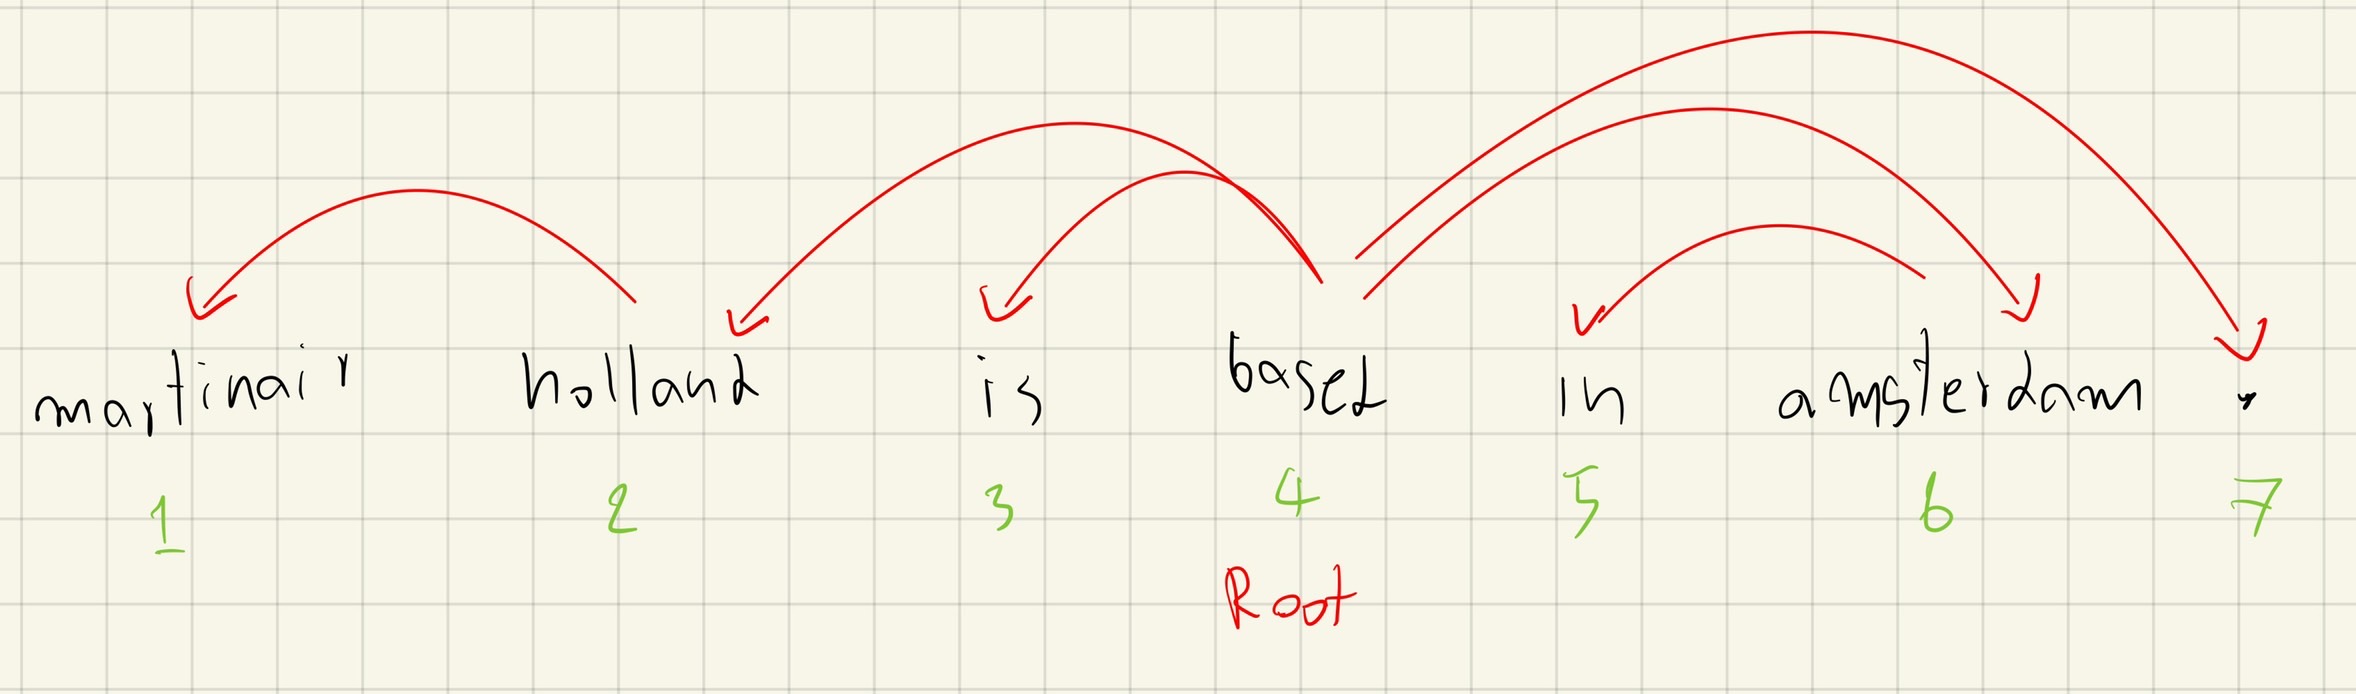 martinair holland is based in amsterdam .
1 2 3 4 5 6 7
Root